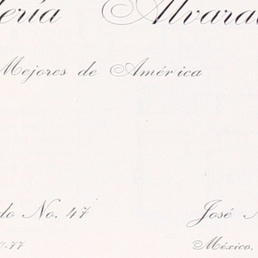 lería Alvarad
Mejores de América
do No. 47 José M
7-77 México,